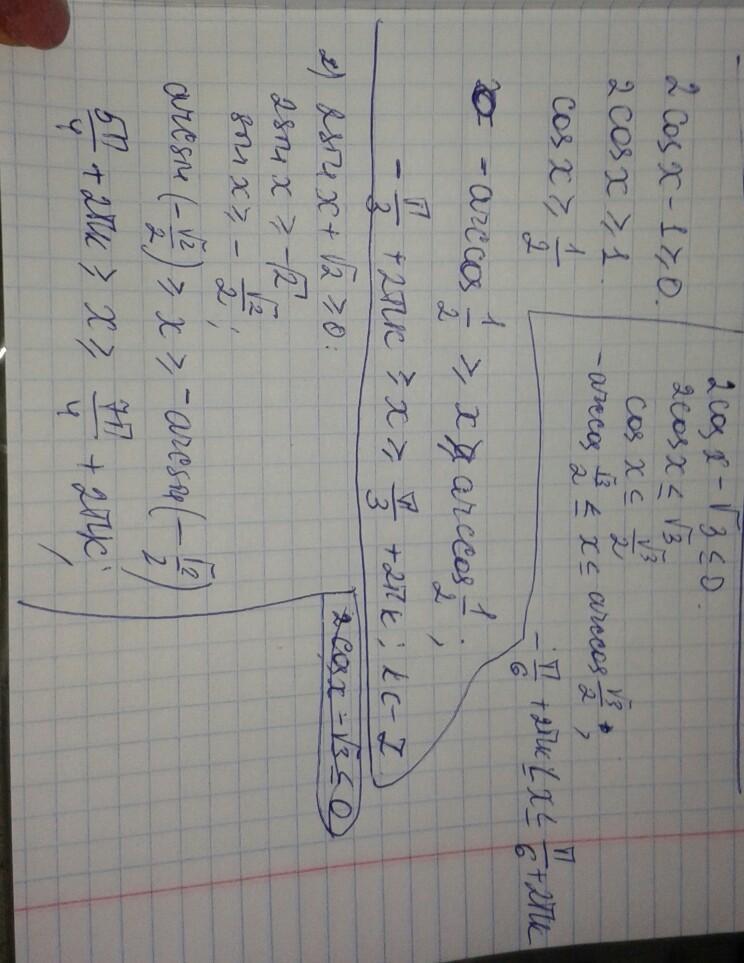 2cosx - 1 ≥ 0.
2cosx ≥ 1
cosx ≥ 1/2
- arccos 1/2 ≥ x ≥ arccos 1/2;
- π/3 + 2πk ≥ x ≥ π/3 + 2πk; k∈-Z
2cosx - √3 ≤ 0.
2cosx ≤ √3
cosx ≤ √3/2
- arccos √3/2 ≤ x ≤ arccos √3/2;
- π/6 + 2πk ≤ x ≤ π/6 + 2πk
2) 2sinx + √2 ≥ 0:
2sinx ≥ -√2
sinx ≥ - √2/2;
arcsin(-√2/2) ≥ x ≥ -arcsin(-√2/2)
5π/4 + 2πk ≥ x ≥ 7π/4 + 2πk;
2cosx - √3 ≤ 0